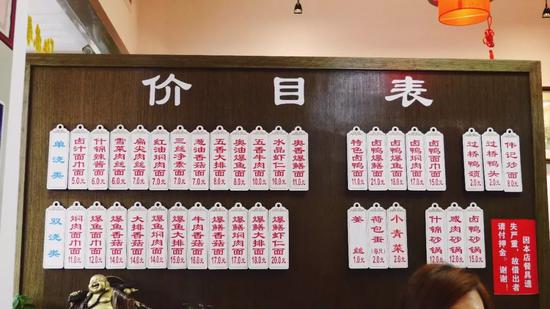 价目表
单浇类
卤汁面巾 5.0元
什锦辣酱 6.0元
雪菜肉丝 6.0元
扁尖肉丝 7.0元
红油焖肉面 7.0元
三丝净素 7.0元
葱油香菇面 7.0元
五香大排面
奥油爆鱼面 8.0元
五香牛肉面
水晶虾仁面 10.0元
奥香爆鳝面 11.0元
特色卤鸭面 11.0元
卤鸭爆鳝面 21.0元
卤鸭爆鱼面 18.0元
卤鸭焖肉面 17.0元
卤鸭面巾面 15.0元
过桥鸭颈 2.0元
过桥鸭头 2.0元
伟记炒面 8.0元
双浇类
焖肉面巾面 11.0元
爆鱼面巾面 12.0元
大排香菇面 14.0元
爆鱼香菇面 14.0元
爆鱼焖肉面 14.0元
爆鱼大排面
牛肉香菇面 16.0元
爆鳝香菇面 17.0元
爆鳝焖肉面
爆鳝大排面 18.0元
爆鳝爆鱼面 18.0元
爆鳝虾仁面 20.0元
姜丝 1.0元
荷包蛋 2.0元
小青菜 2.0元
什锦砂锅 12.0元
咸肉砂锅 12.0元
卤鸭砂锅 15.0元
因本店餐具遗
失严重，故借出者
请付押金。谢谢！